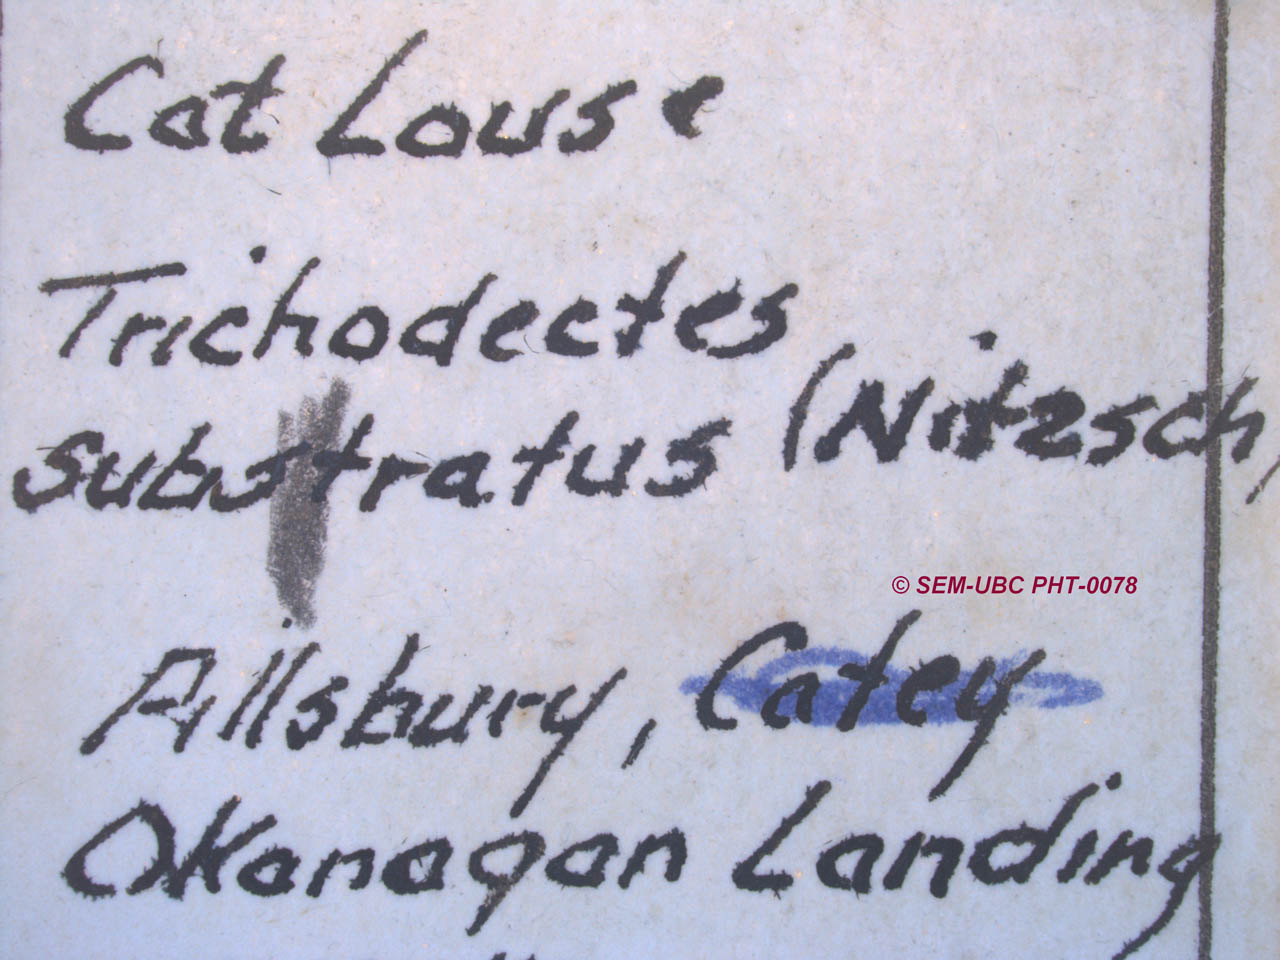 Cat Louse
Trichodectes
substratus (Nitzsch)
© SEM-UBC PHT-0078
Pillsbury, Catey
Okanagan Landing